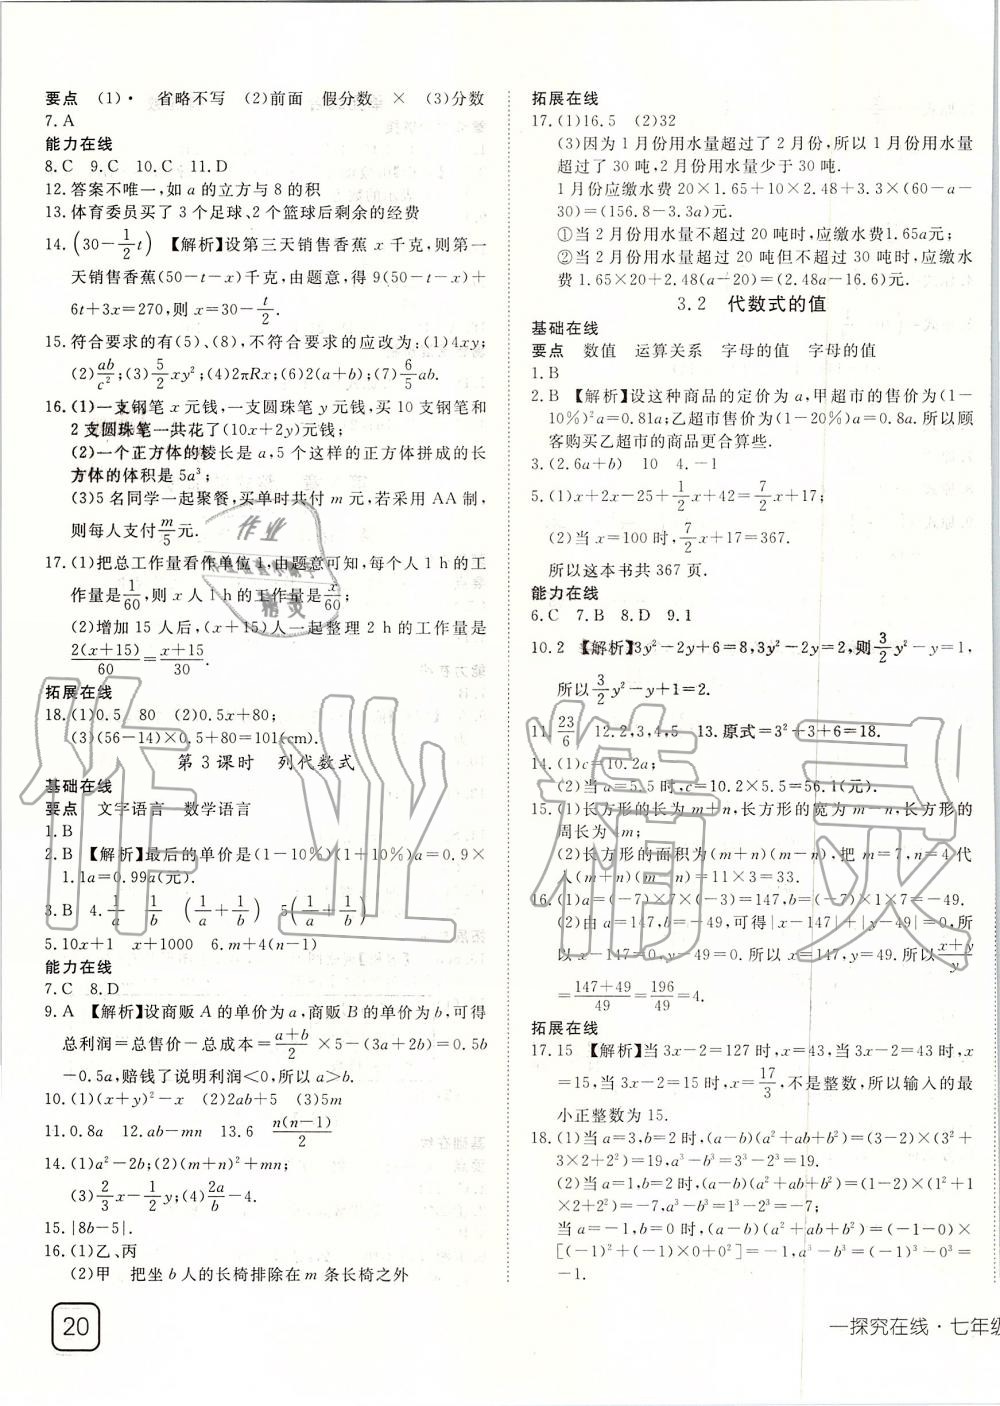 要点 (1)· 省略不写 (2)前面 假分数 × (3)分数
7.A
能力在线
8.C 9.C 10.C 11.D
12.答案不唯一,如a的立方与8的积
13.体育委员买了3个足球、2个篮球后剩余的经费
14.(30-1/2t) 【解析】设第三天销售香蕉x千克,则第一
天销售香蕉(50-t-x)千克,由题意,得9(50-t-x)+
6t+3x=270,则x=30-t/2.
15.符合要求的有(5)、(8),不符合要求的应改为:(1)4xy;
(2)ab/c²;(3)5/2xy²;(4)2πRx;(6)2(a+b);(7)6/5ab.
16.(1)一支钢笔x元钱,一支圆珠笔y元钱,买10支钢笔和
2支圆珠笔一共花了(10x+2y)元钱;
(2)一个正方体的棱长是a,5个这样的正方体拼成的长
方体的体积是5a³;
(3)5名同学一起聚餐,买单时共付m元,若采用AA制,
则每人支付m/5元.
17.(1)把总工作量看作单位1,由题意可知,每个人1h的工
作量是1/60,则x人1h的工作量是x/60;
(2)增加15人后,(x+15)人一起整理2h的工作量是
2(x+15)/60=(x+15)/30.
拓展在线
18.(1)0.5 80 (2)0.5x+80;
(3)(56-14)×0.5+80=101(cm).
第3课时 列代数式
基础在线
要点 文字语言 数学语言
1.B
2.B 【解析】最后的单价是(1-10%)(1+10%)a=0.9×
1.1a=0.99a(元).
3.B 4.1/a 1/b (1/a+1/b) 5(1/a+1/b)
5.10x+1 x+1000 6.m+4(n-1)
能力在线
7.C 8.D
9.A 【解析】设商贩A的单价为a,商贩B的单价为b,可得
总利润=总售价-总成本=(a+b)/2×5-(3a+2b)=0.5b
-0.5a,赔钱了说明利润<0,所以a>b.
10.(1)(x+y)²-x (2)2ab+5 (3)5m
11.0.8a 12.ab-mn 13.6 n(n-1)/2
14.(1)a²-2b;(2)(m+n)²+mn;
(3)2/3x-1/2y;(4)2a/b-4.
15.|8b-5|.
16.(1)乙、丙
(2)甲 把坐b人的长椅排除在m条长椅之外
20
拓展在线
17.(1)16.5 (2)32
(3)因为1月份用水量超过了2月份,所以1月份用水量
超过了30吨,2月份用水量少于30吨.
1月份应缴水费20×1.65+10×2.48+3.3×(60-a-
30)=(156.8-3.3a)元.
①当2月份用水量不超过20吨时,应缴水费1.65a元;
②当2月份用水量超过20吨但不超过30吨时,应缴水
费1.65×20+2.48(a-20)=(2.48a-16.6)元.
3.2 代数式的值
基础在线
要点 数值 运算关系 字母的值 字母的值
1.B
2.B 【解析】设这种商品的定价为a,甲超市的售价为(1-
10%)²a=0.81a;乙超市售价为(1-20%)a=0.8a.所以顾
客购买乙超市的商品更合算些.
3.(2.6a+b) 10 4.-1
5.(1)x+2x-25+1/2x+42=7/2x+17;
(2)当x=100时,7/2x+17=367.
所以这本书共367页.
能力在线
6.C 7.B 8.D 9.1
10.2 【解析】3y²-2y+6=8,3y²-2y=2,则3/2y²-y=1,
所以3/2y²-y+1=2.
11.23/6 12.2,3,4,5 13.原式=3²+3+6=18.
14.(1)c=10.2a;
(2)当a=5.5时,c=10.2×5.5=56.1(元).
15.(1)长方形的长为m+n,长方形的宽为m-n,长方形的
周长为4m;
(2)长方形的面积为(m+n)(m-n),把m=7,n=4代
入(m+n)(m-n)=11×3=33.
16.(1)a=(-7)×7×(-3)=147,b=(-7)×1×7=-49.
(2)由a=147,b=-49,可得|x-147|+|y-49|=0,所
以x-147=0,y-49=0.所以x=147,y=49.所以(x+y)/y
=(147+49)/49=196/49=4.
拓展在线
17.15 【解析】当3x-2=127时,x=43,当3x-2=43时,x
=15,当3x-2=15时,x=17/3,不是整数,所以输入的最
小正整数为15.
18.(1)当a=3,b=2时,(a-b)(a²+ab+b²)=(3-2)(3²+
3×2+2²)=19,a³-b³=3³-2³=19;
(2)当a=1,b=2时,(a-b)(a²+ab+b²)=(1-2)(1²+1
×2+2²)=-7,a³-b³=1³-2³=-7;
当a=-1,b=0时,(a-b)(a²+ab+b²)=(-1-0)×
[(-1)²+(-1)×0+0²]=-1,a³-b³=(-1)³-0³=
-1.
一探究在线·七年级
作业
精灵
作业精灵